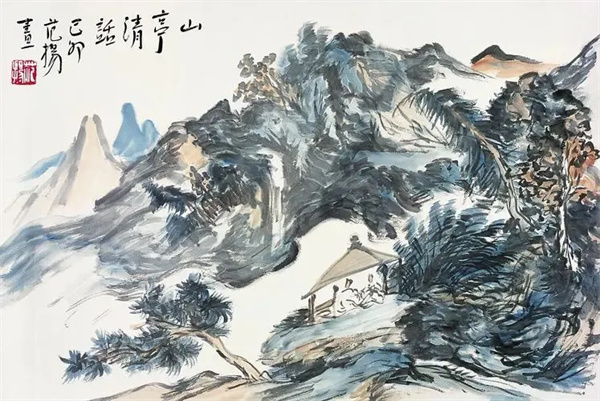 山亭清話
己卯
范揚
畫